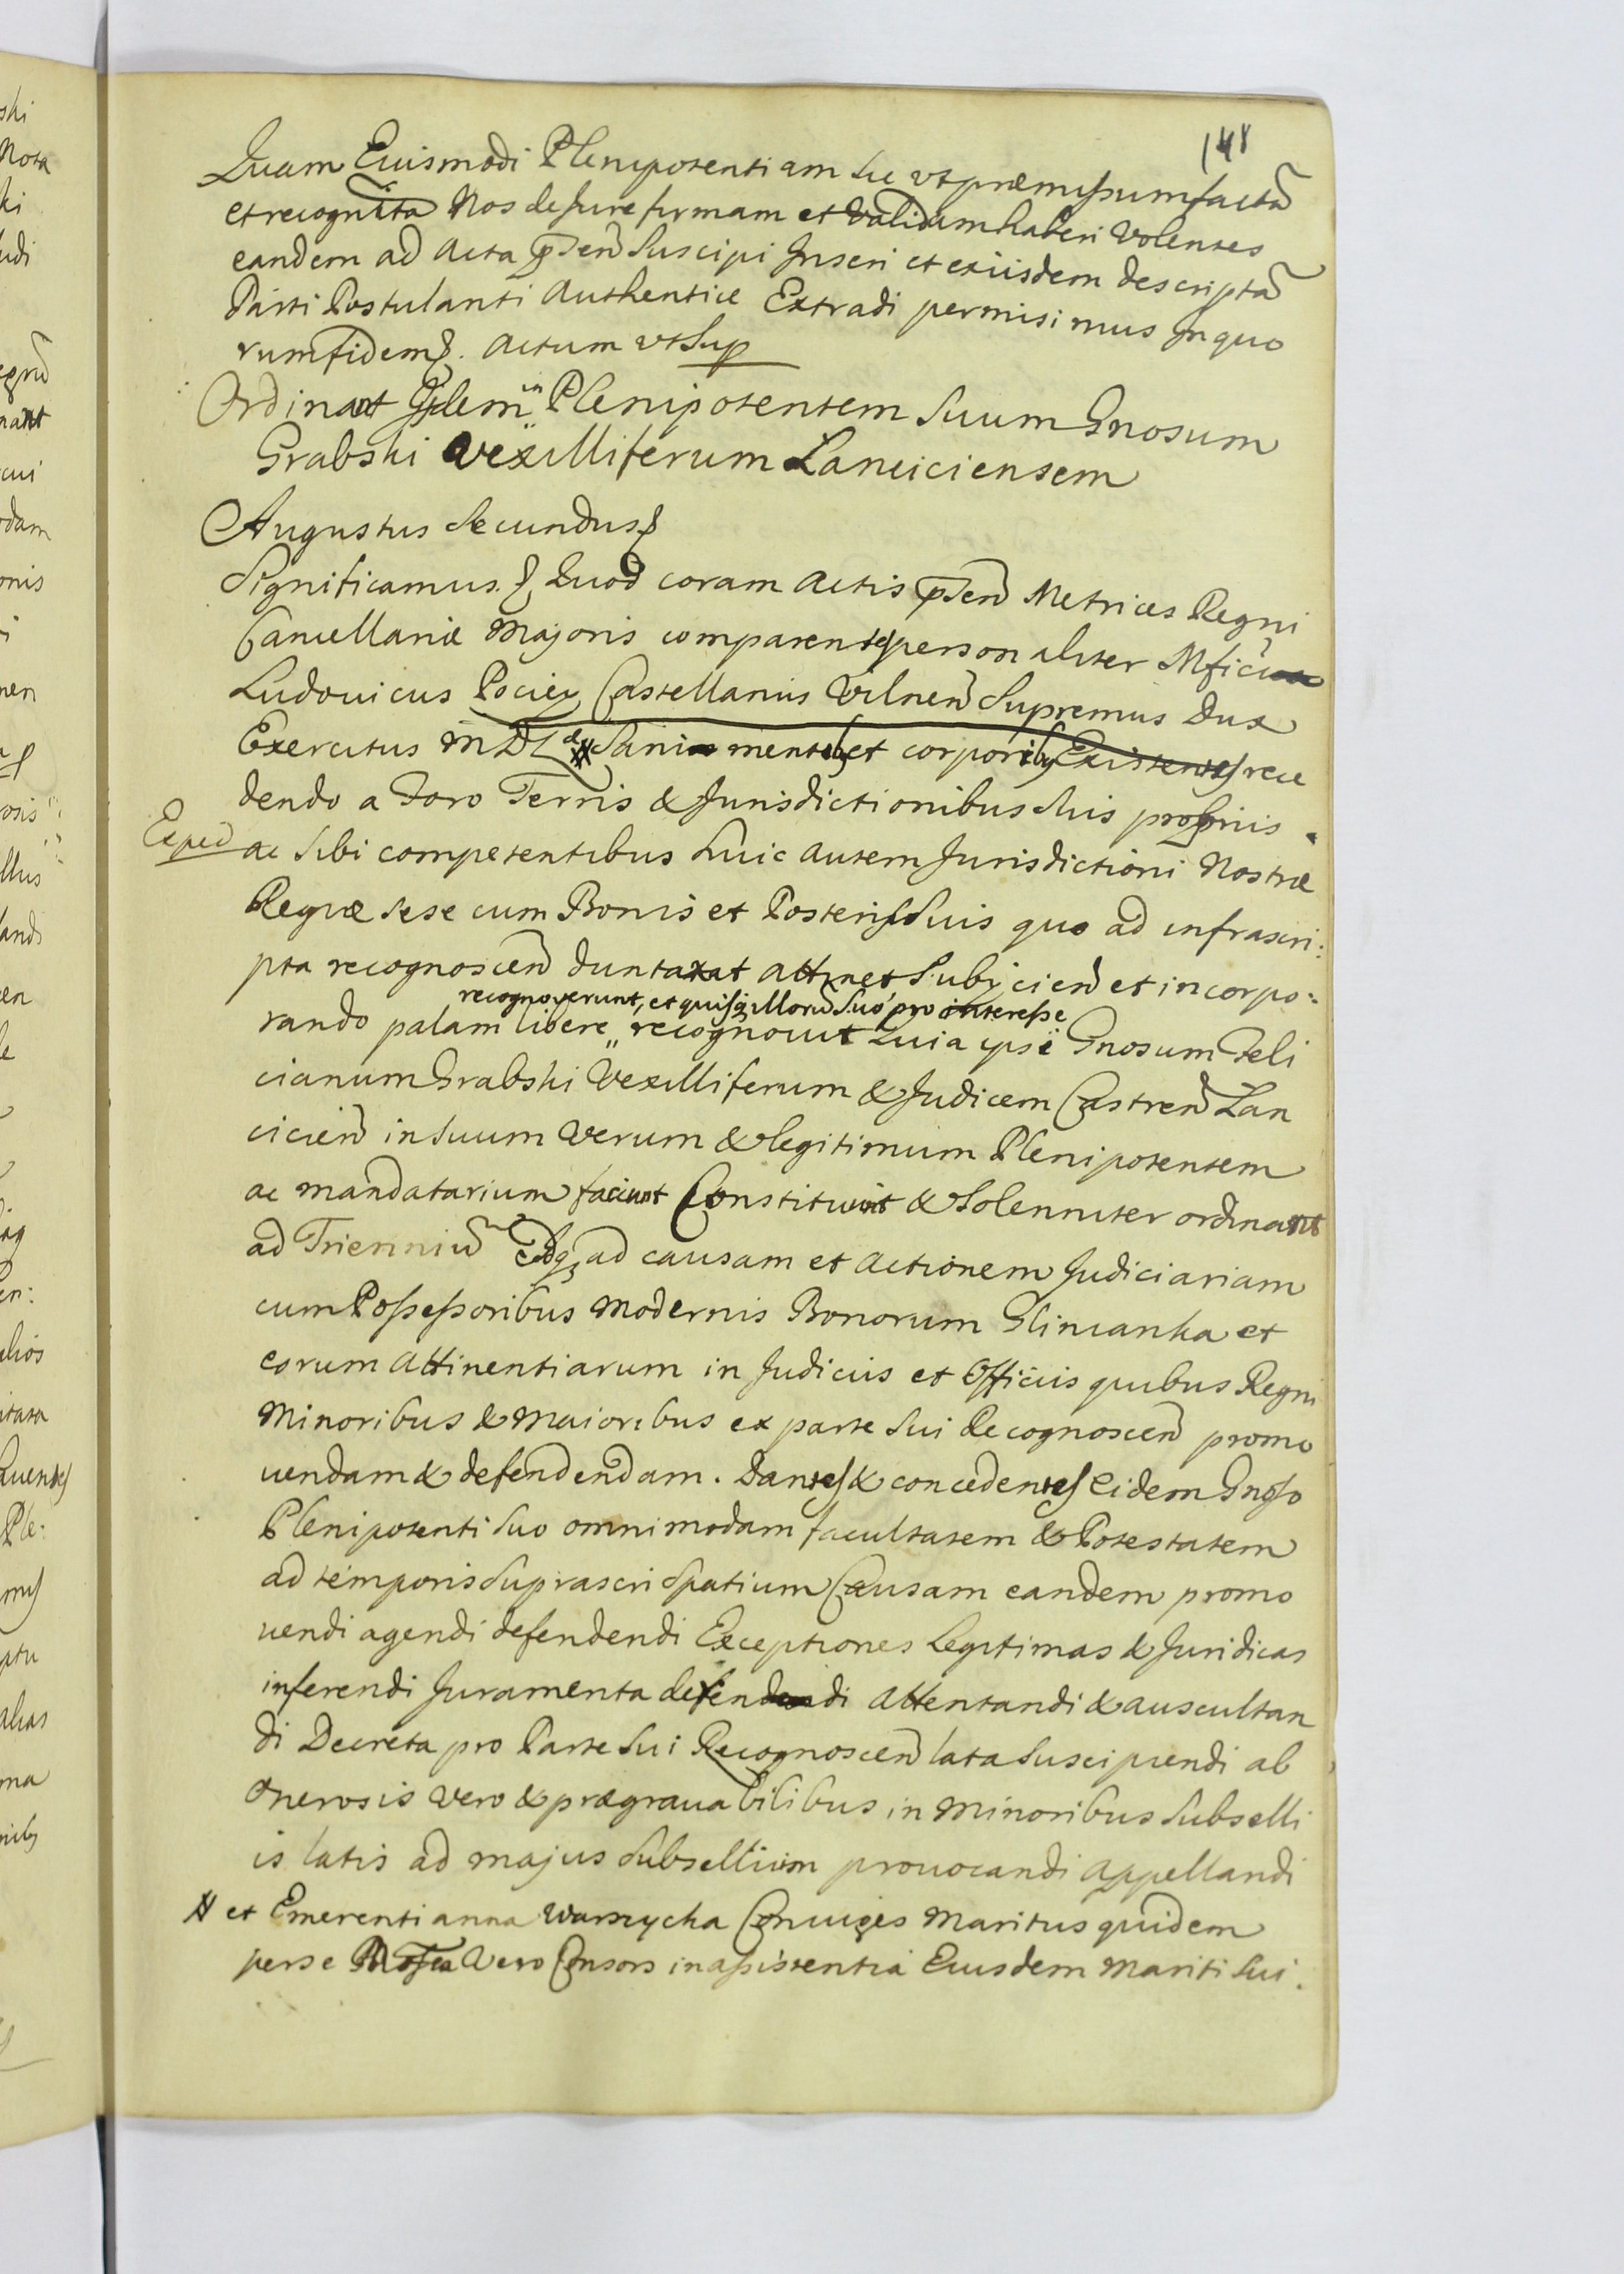 148
Quam Euismodi Plenipotentiam sic vt præmissum factā
et recognita Nos de Jure firmam et validam haberi Volentes
eandem ad Acta pšen Suscipi Inseri et exiisdem descriptā
Parti Postulanti Authentice Extradi permisimus In quo
rum fidem &. Actum vt Sup
Ordinant Plenipotentem Suum Gnosum
Grabski Vexilliferum Lanciciensem
Augustus Secundus &
Significamus. & Quod coram Actis pšen Metrices Regni
Cancellariæ Majoris comparentes personaliter Mfici
Ludouicus Pociey Castellanus Vilnen Supremus Dux
Exercitus M D L # Sani mentibus et corporibus Existentes rece
dendo a Foro Terris & Jurisdictionibus Suis proprijs
Exped
ac sibi competentibus huic autem Jurisdictioni Nostræ
Regiæ sese cum Bonis et Posteris Suis quo ad infrascri:
pta recognoscen duntaxat attinet Subijcien et incorpo:
recognoverunt, et quisq; illorū Suo pro interesse
rando palam libere „ recognouit Quia ipsi Gnosum Feli
cianum Grabski Vexilliferum & Judicem Castren Lan
cicien in Suum Verum & legitimum Plenipotentem
ac mandatarium faciunt Constituunt & Solenniter ordinant
ad Trienniū Idq; ad causam et Actionem Judiciariam
cum Possessoribus modernis Bonorum Glinianka et
eorum Attinentiarum in Judiciis et Officiis quibus Regni
Minoribus & Maioribus ex parte Sui Recognoscen promo
uendam & defendendam. Dantes & concedentes eidem Gnoso
Plenipotenti Suo omnimodam facultatem & Potestatem
ad temporis Suprascri Spatium Causam eandem promo
uendi agendi defendendi Exceptiones Legitimas & Juridicas
inferendi Juramenta deferendi Attentandi & auscultan
di Decreta pro Parte Sui Recognoscen lata Suscipiendi ab
Onerosis Vero & prægrauabilibus in Minoribus Subselli
is latis ad majus Subsellium prouocandi Appellandi
# et Emerentianna Warszycka Coniuges Maritus quidem
per se Vero Consors in assistentia Eiusdem Mariti Sui.